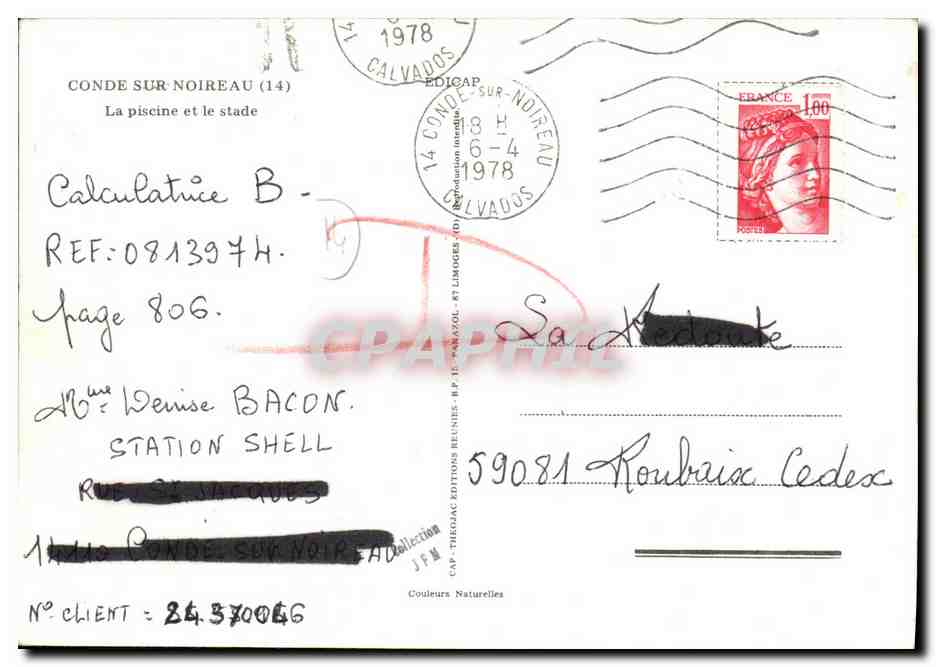 1978
CALVADOS
CONDE SUR NOIREAU (14)
La piscine et le stade
EDICAP
14 CONDE-SUR-NOIREAU
18 H
6-4
1978
CALVADOS
FRANCE 1,00
POSTES
Calculatrice B -
REF: 0813974.
page 806.
Mme Denise BACON.
STATION SHELL
RUE St JACQUES
14110 CONDE SUR NOIREAU
N° CLIENT =
La Redoute
59081 Roubaix Cedex
CAP - THEOJAC EDITIONS REUNIES - B.P. 15 - PANAZOL - 87 LIMOGES - (D) Reproduction interdite
Collection
JFM
Couleurs Naturelles
CPAPHIL